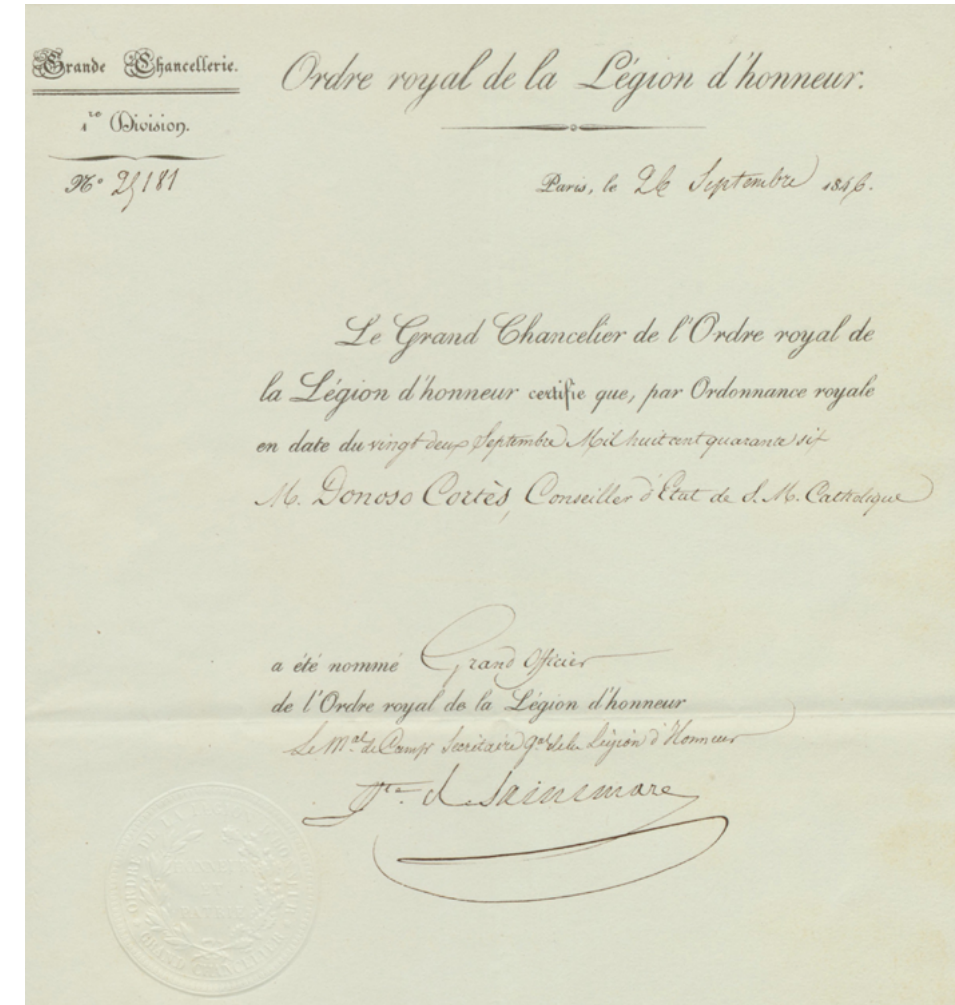 Grande Chancellerie.
Ordre royal de la Légion d'honneur.
1re Division.
No 25181
Paris, le 26 Septembre 1846.
Le Grand Chancelier de l'Ordre royal de
la Légion d'honneur certifie que, par Ordonnance royale
en date du vingt deux Septembre Mil huit cent quarante six
M. Donoso Cortès, Conseiller d'Etat de S. M. Catholique
a été nommé Grand Officier
de l'Ordre royal de la Légion d'honneur
Le Mal de Camp Secrétaire gal de la Légion d'Honneur
Vte de Saintmare
ORDRE DE LA
HONNEUR
ET
PATRIE